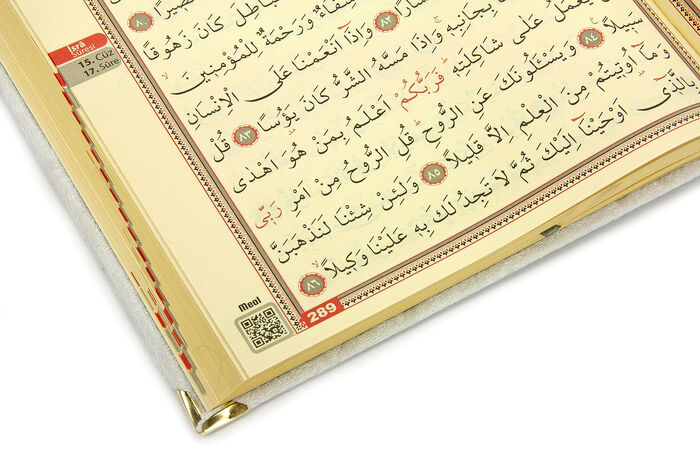 İsrâ
Sûresi
15. Cüz
17. Sûre
الْبَاطِلَ كَانَ زَهُوقًا ﴿٨١﴾
شِفَٓاءٌ وَرَحْمَةٌ لِلْمُؤْمِنٖينَۙ
﴿٨٢﴾ وَاِذَٓا اَنْعَمْنَا عَلَى الْاِنْسَانِ
بِجَانِبِهٖۚ وَاِذَا مَسَّهُ الشَّرُّ كَانَ يَؤُسًا ﴿٨٣﴾ قُلْ
يَعْمَلُ عَلٰى شَاكِلَتِهٖۜ فَرَبُّكُمْ اَعْلَمُ بِمَنْ هُوَ اَهْدٰى
سَبٖيلًا۟ ﴿٨٤﴾ وَيَسْـَٔلُونَكَ عَنِ الرُّوحِۜ قُلِ الرُّوحُ مِنْ اَمْرِ رَبّٖى
وَمَٓا اُو۫تٖيتُمْ مِنَ الْعِلْمِ اِلَّا قَلٖيلًا ﴿٨٥﴾ وَلَئِنْ شِئْنَا لَنَذْهَبَنَّ
بِالَّذٖٓى اَوْحَيْنَٓا اِلَيْكَ ثُمَّ لَا تَجِدُ لَكَ بِهٖ عَلَيْنَا وَكٖيلًاۙ ﴿٨٦﴾
Meal
289